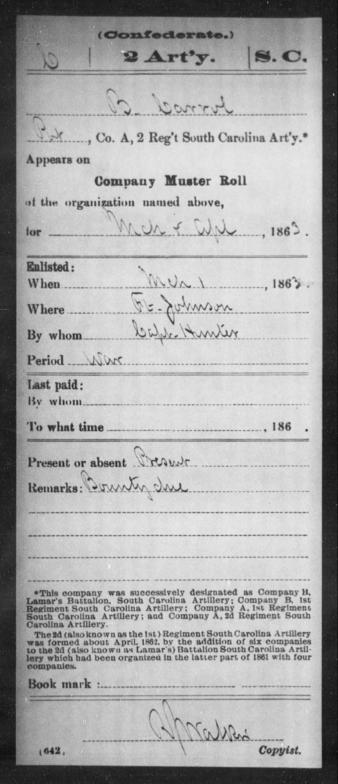 (Confederate.)
C | 2 Art'y. | S. C.
B. Carrol
Pvt, Co. A, 2 Reg't South Carolina Art'y.*
Appears on
Company Muster Roll
of the organization named above,
for Mch & Apl, 1863.
Enlisted:
When Mch 1, 1863.
Where Ft. Johnson
By whom Capt. Hunter
Period War
Last paid:
By whom
To what time , 186 .
Present or absent Present
Remarks: Bounty due
*This company was successively designated as Company B,
Lamar's Battalion, South Carolina Artillery; Company B, 1st
Regiment South Carolina Artillery; Company A, 1st Regiment
South Carolina Artillery; and Company A, 2d Regiment South
Carolina Artillery.
The 2d (also known as the 1st) Regiment South Carolina Artillery
was formed about April, 1862, by the addition of six companies
to the 2d (also known as Lamar's) Battalion South Carolina Artil-
lery which had been organized in the latter part of 1861 with four
companies.
Book mark :
Walker
(642) Copyist.